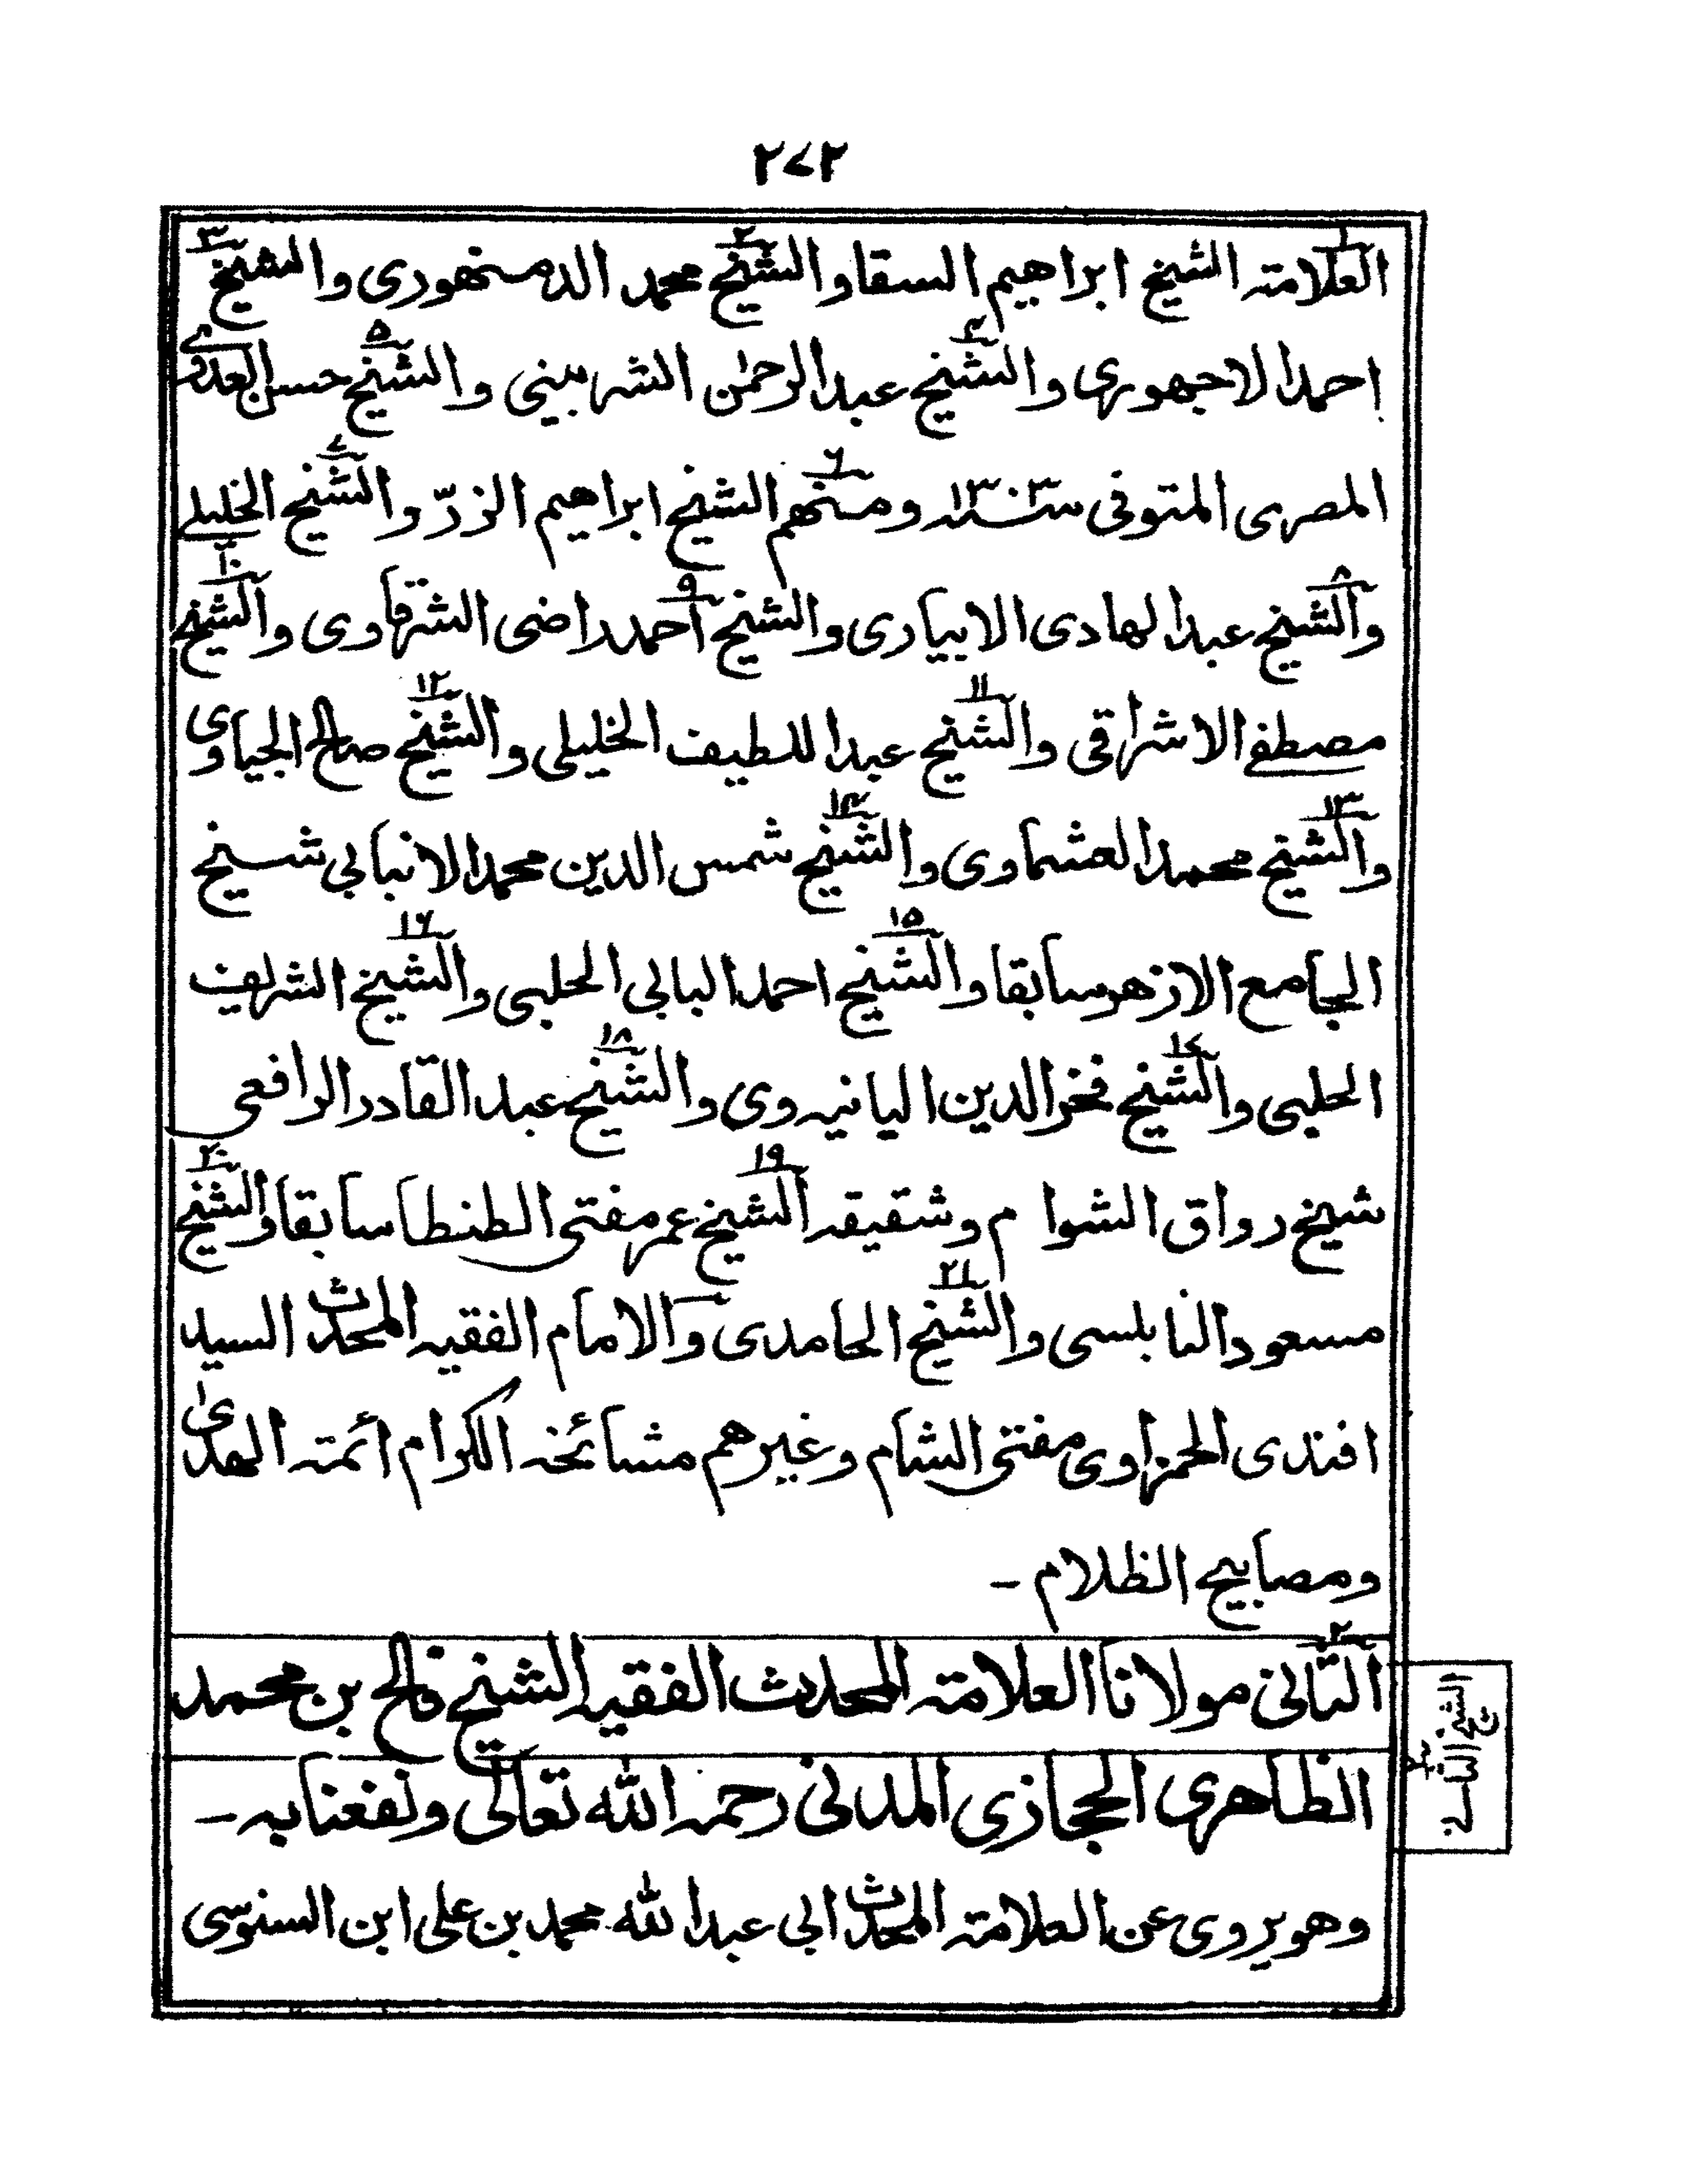 ٢٧٢
العلامتہ الشیخ ابراھیم السقا والشیخ محمد الدمنھوری والشیخ
احمد الاجھوری والشیخ عبدالرحمٰن الشربینی والشیخ حسن العدوی
المصری المتوفی سنہ ١٣٠٣ ومنھم الشیخ ابراھیم الزرّو والشیخ الخلیلے
والشیخ عبدالھادی الابیاری والشیخ احمد راضی الشرقاوی والشیخ
مصطفے الاشراقی والشیخ عبداللطیف الخلیلی والشیخ صالح الجیاوی
والشیخ محمد العشماوی والشیخ شمس الدین محمد الانبابی شیخ
الجامع الازھر سابقا والشیخ احمد البابی الحلبی والشیخ الشریف
الحلبی والشیخ فخرالدین الیانیہ وی والشیخ عبد القادر الرافعی
شیخ رواق الشوام وشقیقہ الشیخ عمر مفتی الطنطا سابقا والشیخ
مسعود النابلسی والشیخ الحامدی والامام الفقیہ المحدث السید
افندی الحمزاوی مفتی الشام وغیرھم مشائخہ الکرام ائمتہ الھدیٰ
ومصابیح الظلام ۔
الثانی مولانا العلامتہ المحدث الفقیہ الشیخ فالح بن محمد
الظاھری الحجازی المدنی رحمہ اللہ تعالٰی ونفعنا بہ ۔
الشیخ الثانی
وھو یروی عن العلامتہ المحدث ابی عبد اللہ محمد بن علی ابن السنوسی